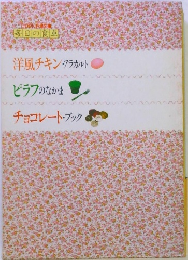 洋風チキン・アラカルト
ピラフのなかま
チョコレート・ブック